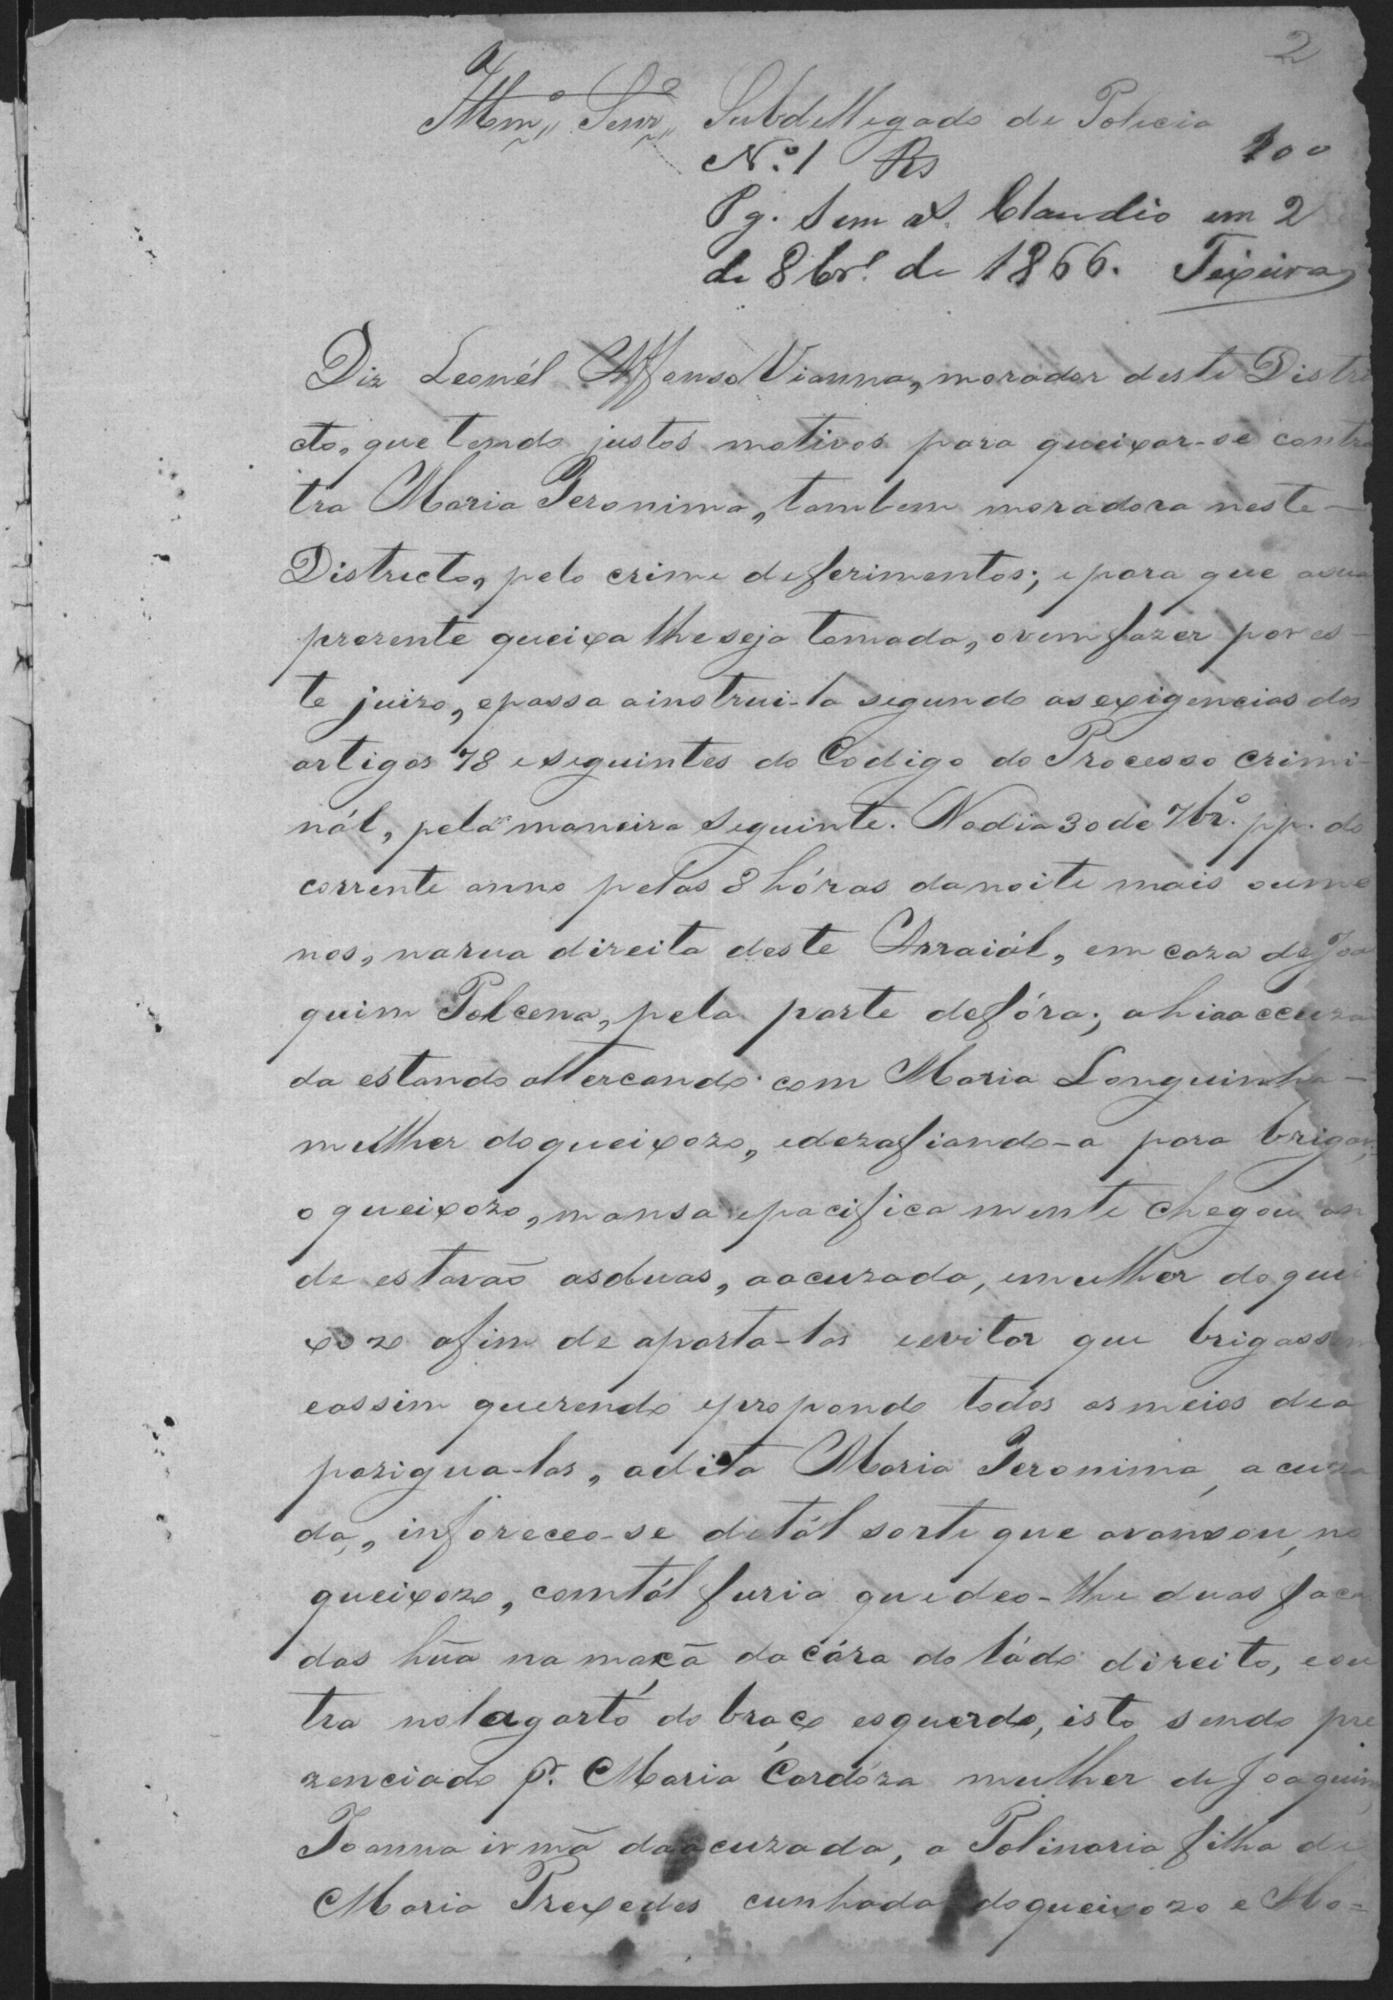 2
Illmº Senrº Subdellegado de Policia
Nº 1 Rs 200
Pg. Sem al. Claudio em 2
de 8brº de 1866. Teixeira
Diz Leonél Affonso Vianna, morador deste Distri
cto, que tendo justos motivos para queixar-se contra
tra Maria Jeronima, tambem moradora neste-
Districto, pelo crime de ferimentos; e para que a sua
prezente queixa lhe seja tomada, o vem fazer por es-
te juizo, e passa a instrui-la segundo as exigencias dos
artigos 78 e seguintes do Codigo do Processo crimi-
nál, pela maneira seguinte. No dia 30 de 7brº pp. do
corrente anno pelas 8 hóras da noite mais ou me
nos, na rua direita deste Arraiál, em caza de Joa
quim Polcena, pela parte de fóra; ahi a accuza
da estando altercando com Maria Longuinha-
mulher do queixozo, e dezafiando-a para brigar,
o queixozo, mansa e pacificamente chegou on
de estavão as duas, a acuzada, e mulher do quei
xozo afim de aparta-las e evitar que brigassem
e assim querendo e propondo todos os meios de a
pazigua-las, a dita Maria Jeronima, a cuza
da, inforeceo-se de tál sorte que avansou, no
queixozo, com tál furia que deo-lhe duas faca
das hũa na maçã da cára do ládo direito, e ou
tra no lagarto do braço esquerdo, isto sendo pre
zenciado pr. Maria Cardóza mulher de Joaquim,
Joanna irmã da acuzada, a Polinaria filha de
Maria Prexedes cunhada do queixozo e Ma=